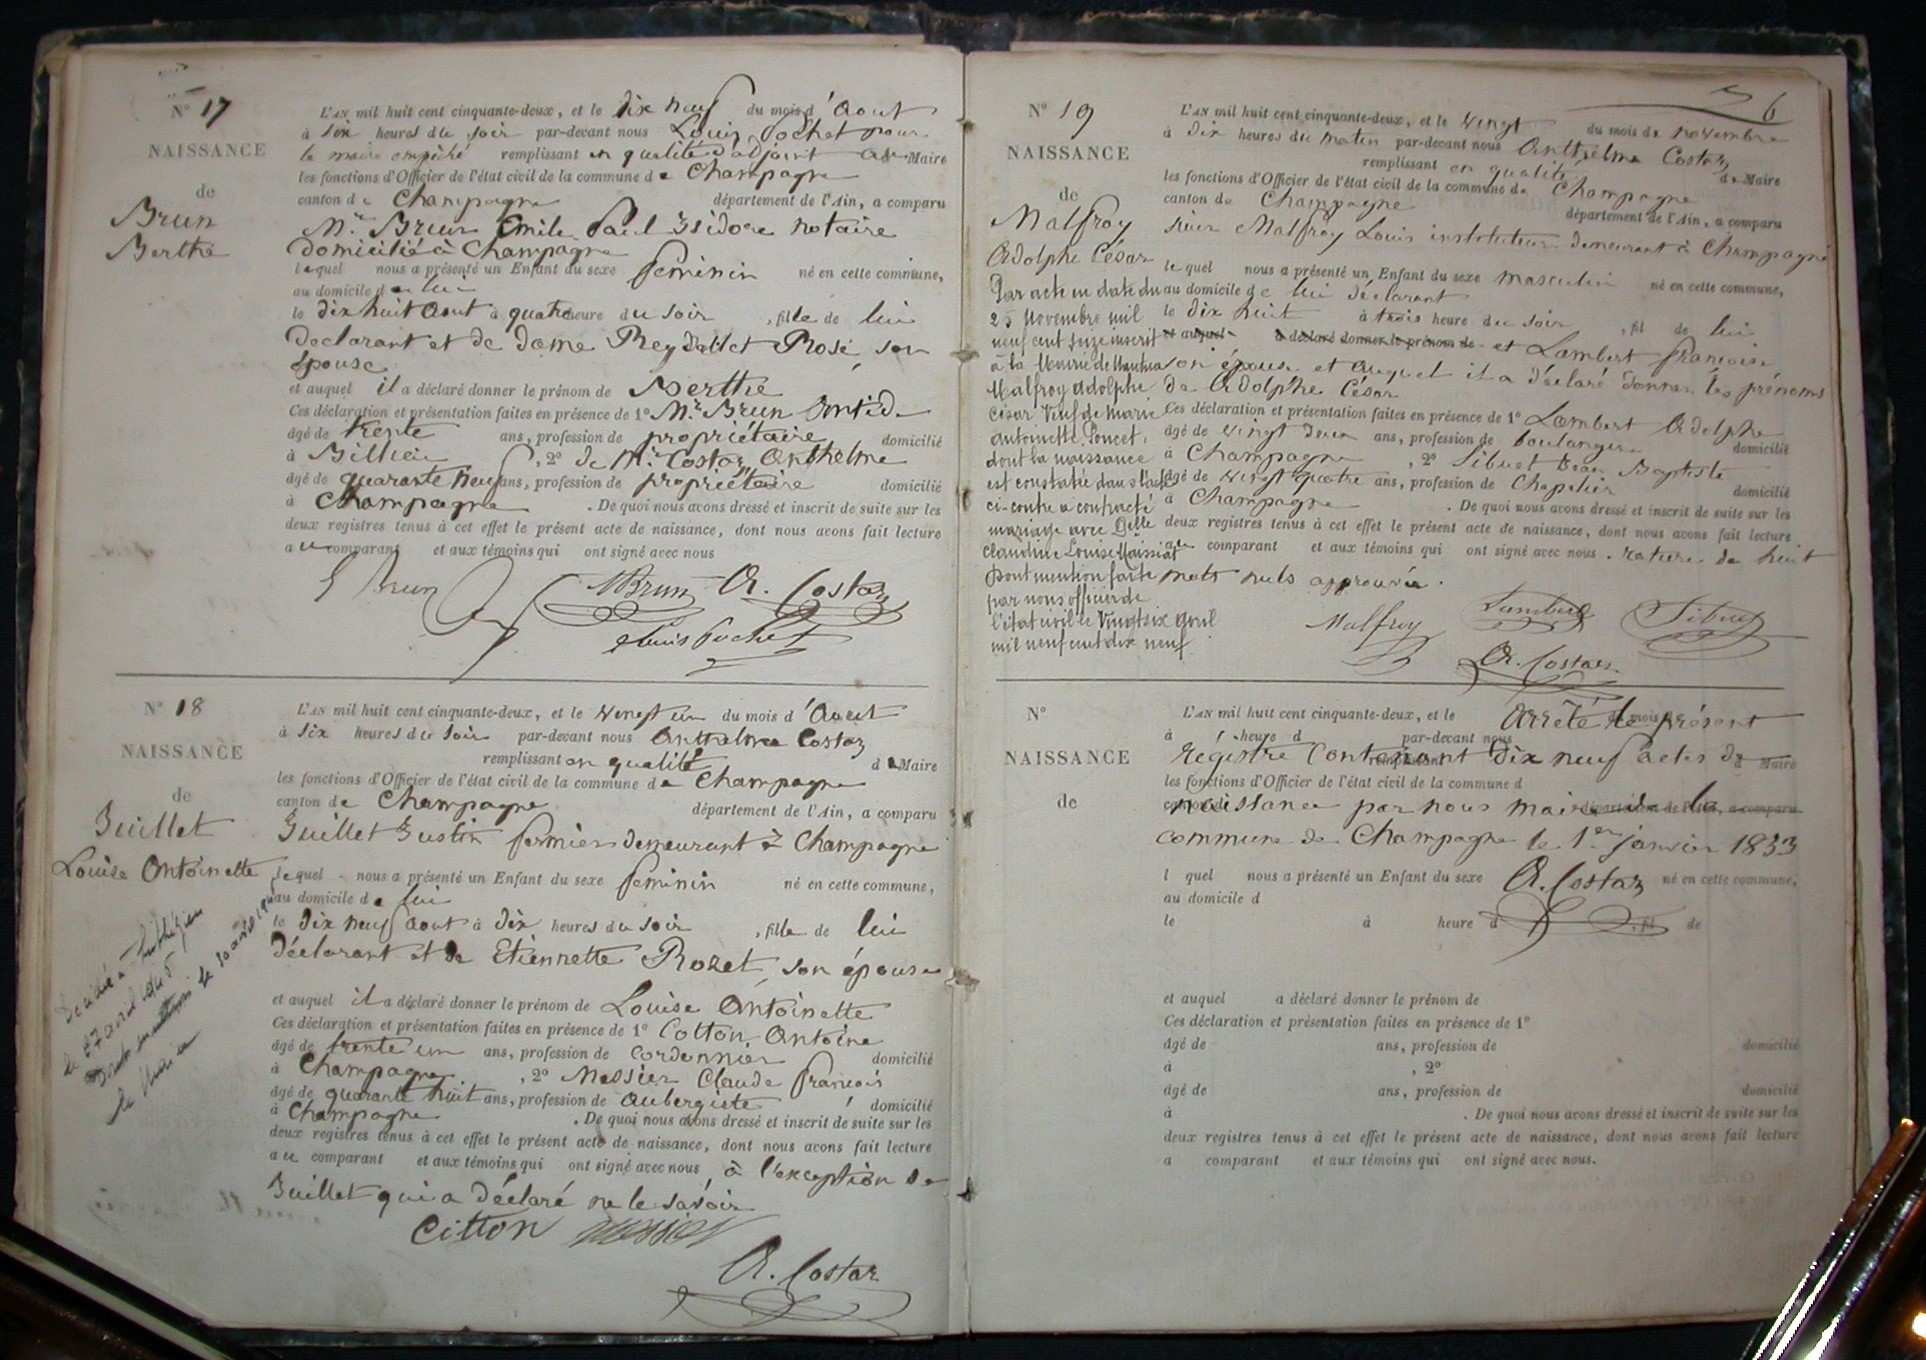 N° 17
NAISSANCE
de
Brun
Berthe
L'AN mil huit cent cinquante-deux, et le dix neuf du mois d'Aout
à six heures du soir par-devant nous Louis Pochet pour
le maire empêché remplissant en qualité d'adjoint Maire
les fonctions d'Officier de l'état civil de la commune de Champagne
canton de Champagne département de l'Ain, a comparu
Mr. Brun Emile Paul Isidore notaire
domicilié à Champagne
lequel nous a présenté un Enfant du sexe feminin né en cette commune,
au domicile de lui
le dix huit Aout à quatre heure du soir, fille de lui
declarant et de dame Reydellet Rose son
épouse
et auquel il a déclaré donner le prénom de Berthe
Ces déclaration et présentation faites en présence de 1° Mr. Brun
âgé de trente ans, profession de propriétaire domicilié
à Billieu, 2° de Mr. Costaz Anthelme
âgé de quarante neuf ans, profession de propriétaire domicilié
à Champagne. De quoi nous avons dressé et inscrit de suite sur les
deux registres tenus à cet effet le présent acte de naissance, dont nous avons fait lecture
au comparant et aux témoins qui ont signé avec nous
E Brun Brun A. Costaz
Louis Pochet
N° 18
NAISSANCE
de
Juillet
Louise Antoinette
Décédée à
le 27 avril
le Maire
L'AN mil huit cent cinquante-deux, et le vingt un du mois d'Aout
à six heures du soir par-devant nous Anthelme Costaz
remplissant en qualité de Maire
les fonctions d'Officier de l'état civil de la commune de Champagne
canton de Champagne département de l'Ain, a comparu
Juillet Justin fermier demeurant à Champagne
lequel nous a présenté un Enfant du sexe feminin né en cette commune,
au domicile de lui
le dix neuf aout à dix heures du soir, fille de lui
déclarant et de Etiennette Rozet, son épouse
et auquel il a déclaré donner le prénom de Louise Antoinette
Ces déclaration et présentation faites en présence de 1° Cotton Antoine
âgé de trente un ans, profession de cordonnier domicilié
à Champagne, 2° Messier Claude François
âgé de quarante huit ans, profession de aubergiste domicilié
à Champagne. De quoi nous avons dressé et inscrit de suite sur les
deux registres tenus à cet effet le présent acte de naissance, dont nous avons fait lecture
au comparant et aux témoins qui ont signé avec nous à l'exception de
Juillet qui a déclaré ne le savoir
Citton Messier
A. Costaz
6
N° 19
NAISSANCE
de
Malfroy
Adolphe César
Par acte en date du
25 Novembre mil
neuf cent seize inscrit
à la Mairie de Nantua
Malfroy Adolphe
César Veuf de Marie
antoinette Poncet,
dont la naissance
est constatée dans l'acte
ci-contre a contracté
mariage avec Delle
Claudine Louise
dont mention faite
par nous officier de
l'état civil le Vingt six avril
mil neuf cent dix neuf
L'AN mil huit cent cinquante-deux, et le vingt du mois de novembre
à dix heures du matin par-devant nous Anthelme Costaz
remplissant en qualité de Maire
les fonctions d'Officier de l'état civil de la commune de Champagne
canton de Champagne département de l'Ain, a comparu
sieur Malfroy Louis instituteur demeurant à Champagne
lequel nous a présenté un Enfant du sexe masculin né en cette commune,
au domicile de lui déclarant
le dix huit à trois heure du soir, fil de lui
et auquel a déclaré donner le prénom de et Lambert françoise
son épouse et auquel il a déclaré donner les prénoms
de Adolphe César
Ces déclaration et présentation faites en présence de 1° Lambert Adolphe
âgé de vingt deux ans, profession de boulanger domicilié
à Champagne, 2° Sibuet Jean Baptiste
âgé de vingt quatre ans, profession de Chapelier domicilié
à Champagne. De quoi nous avons dressé et inscrit de suite sur les
deux registres tenus à cet effet le présent acte de naissance, dont nous avons fait lecture
au comparant et aux témoins qui ont signé avec nous. rature de huit
mots nuls approuvée.
Malfroy Lambert Sibuet
A. Costaz
N°
NAISSANCE
de
L'AN mil huit cent cinquante-deux, et le Arrêté le présent
à heure d par-devant nous
Régistre Contenant dix neuf actes de Maire
les fonctions d'Officier de l'état civil de la commune d
naissance par nous maire de la a comparu
commune de Champagne le 1er janvier 1853
l quel nous a présenté un Enfant du sexe A. Costaz né en cette commune,
au domicile d
le à heure d, fil de
et auquel a déclaré donner le prénom de
Ces déclaration et présentation faites en présence de 1°
âgé de ans, profession de domicilié
à , 2°
âgé de ans, profession de domicilié
à . De quoi nous avons dressé et inscrit de suite sur les
deux registres tenus à cet effet le présent acte de naissance, dont nous avons fait lecture
a comparant et aux témoins qui ont signé avec nous.